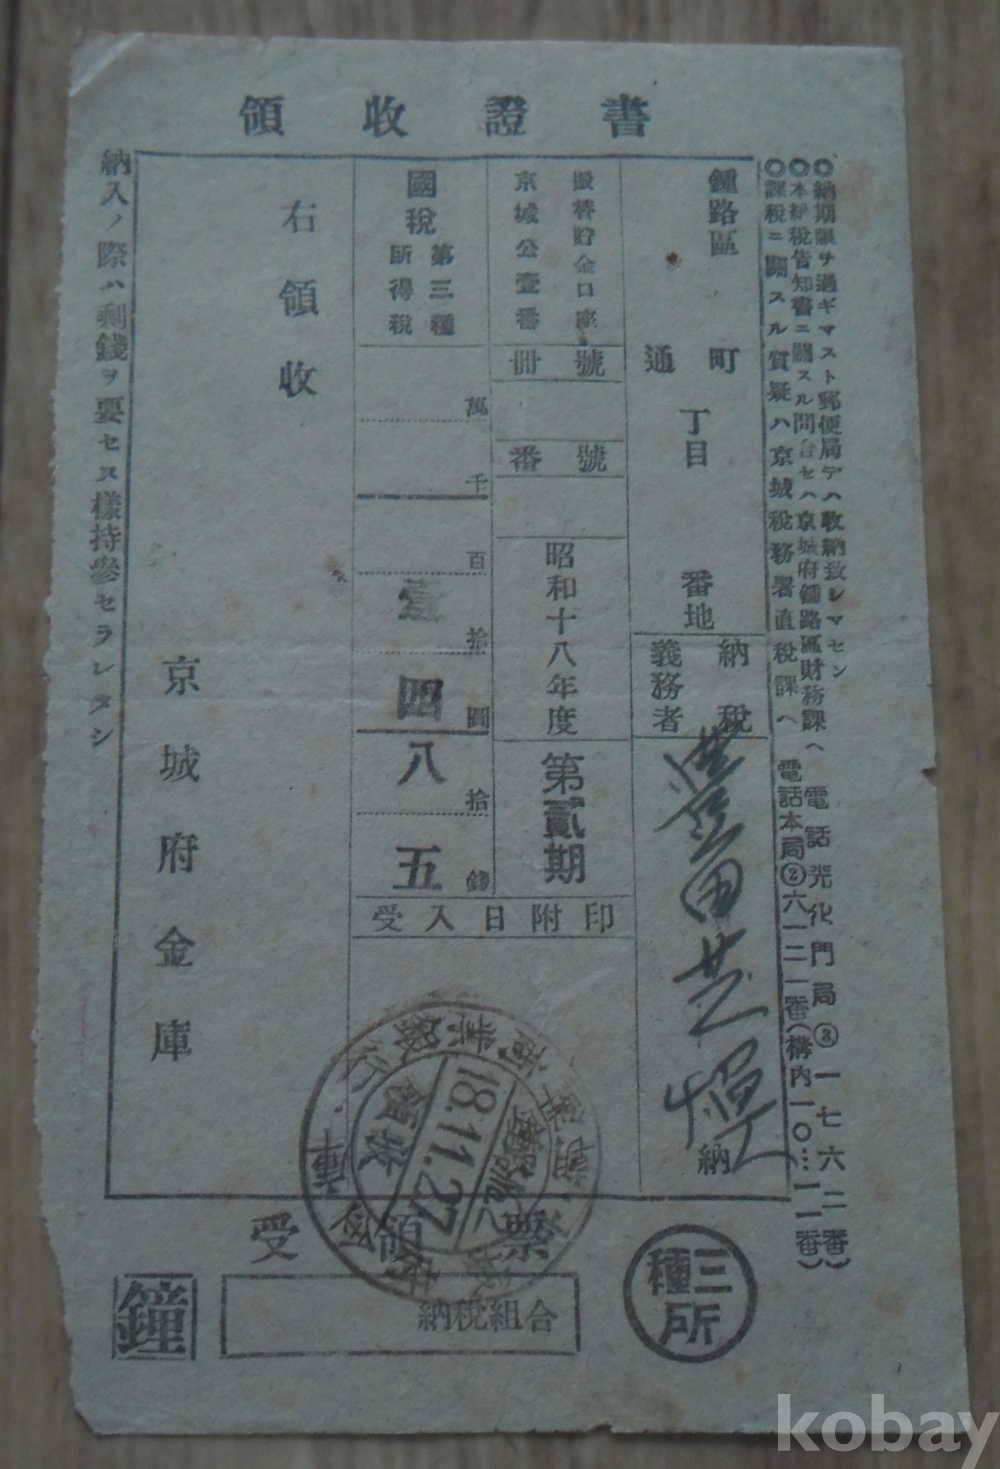 領收證書
◎納期限ヲ過ギマスト郵便局デハ收納致シマセン
◎本納税告知書ニ關スル問合セハ京城府鍾路區財務課ヘ 電話光化門局③一七六二番
◎課税ニ關スル質疑ハ京城税務署直税課ヘ 電話本局②六一二一番(構内一〇…一一番)
鍾路區 町
通 丁目 番地
納税義務者
豊田芝
納
振替貯金口座
京城公壹番
冊號
番號
昭和十八年度
第貳期
國税
第三種
所得税
萬
千
百
拾 壹
圓 四
拾 八
錢 五
受入日附印
右領收
京城府金庫
納入ノ際ハ剩錢ヲ要セス樣持參セラレタシ
商業銀行
領收
18.11.27
受領票
納税組合
鐘
三種所
kobay